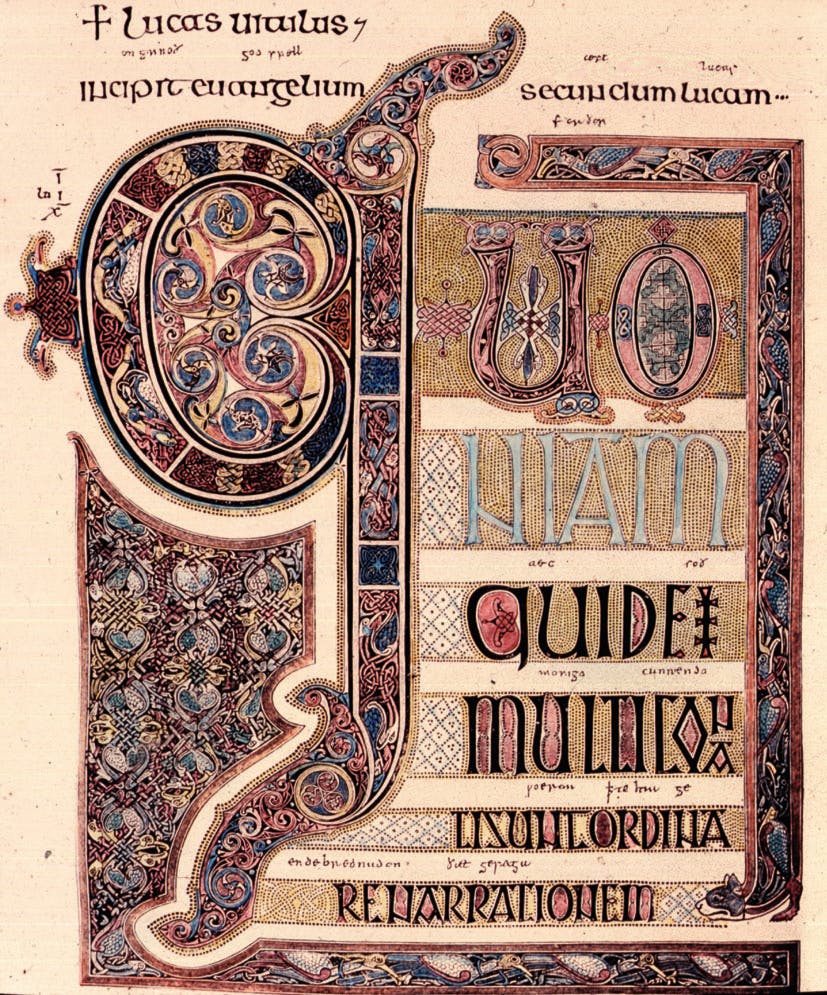 + Lucas uitulus
onginneð godspell
incipit euangelium secundum lucam
QUO
NIAM
aec soð
QUIDEM
monigo cunnendo
MULTI CONA
woeron þte hiu ge
TI SUNT ORDINA
endebrednudon ðæt gesagu
RE NARRATIONEM